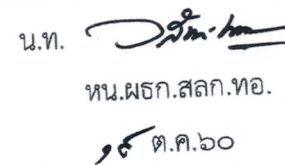 น.ท.
หน.ผธก.สลก.ทอ.
ต.ค.๖๐